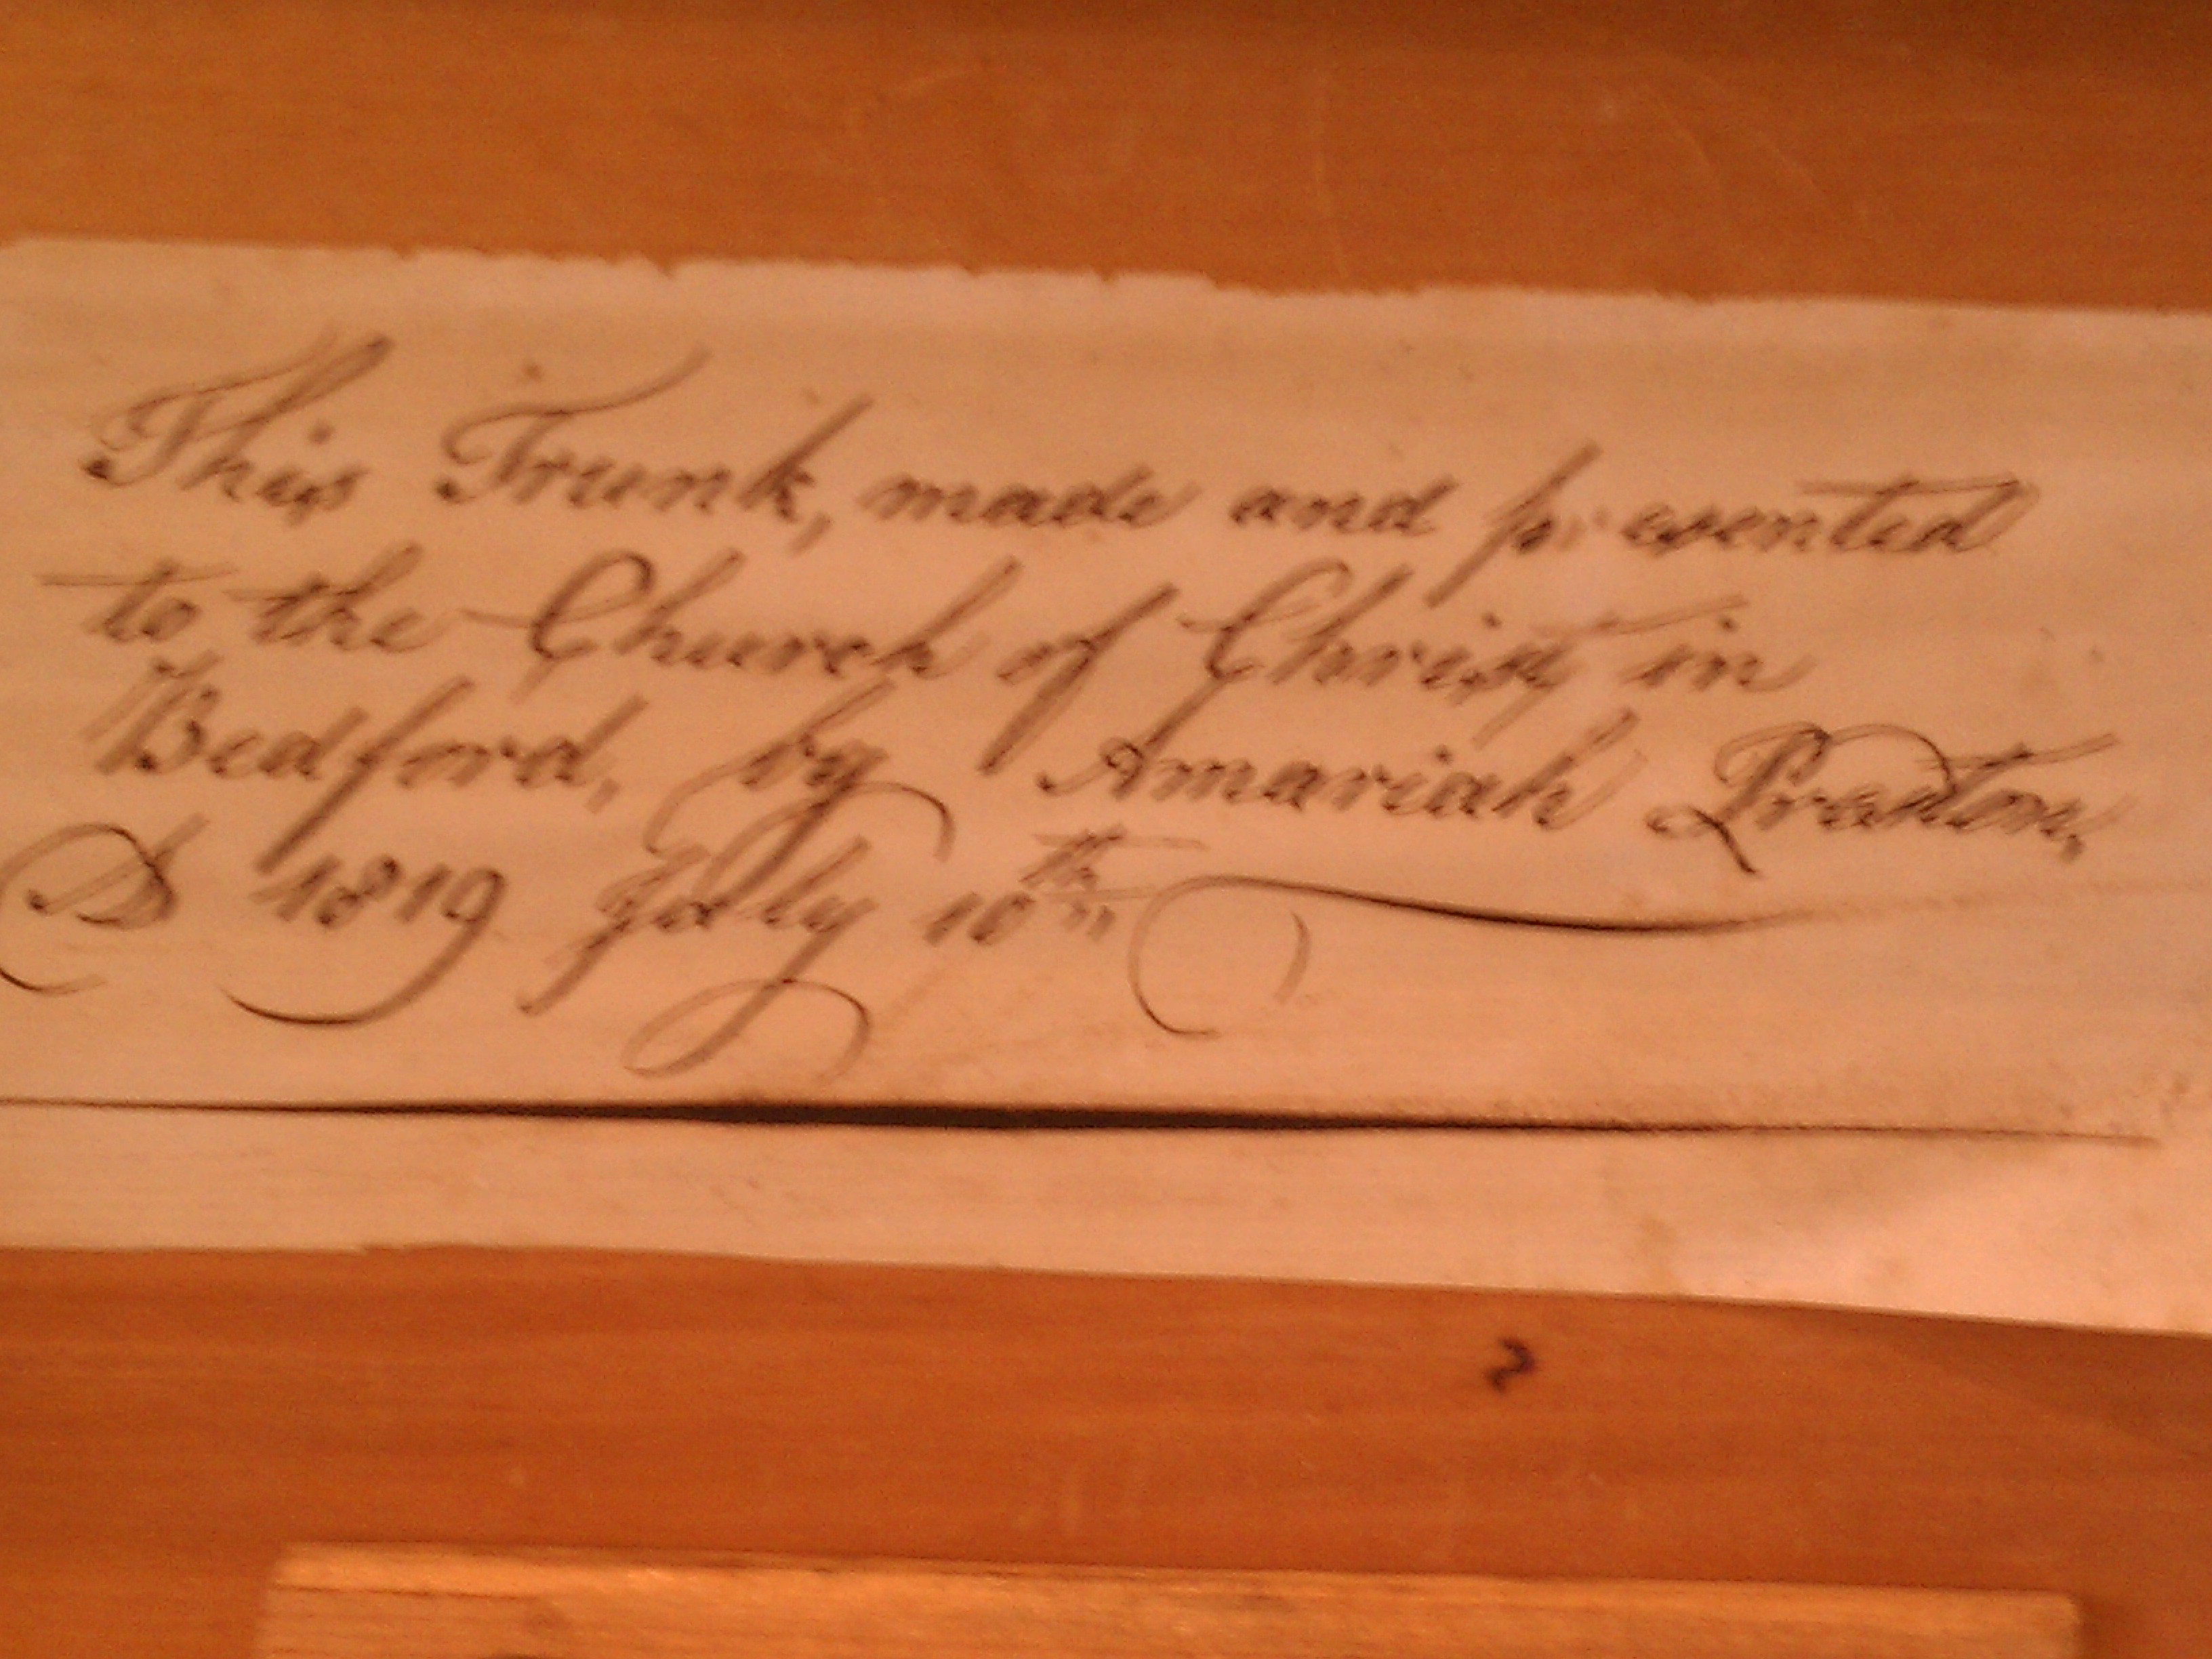 This Trunk, made and presented
to the Church of Christ in
Bedford, by Amariah Preston,
AD 1819 July 10th